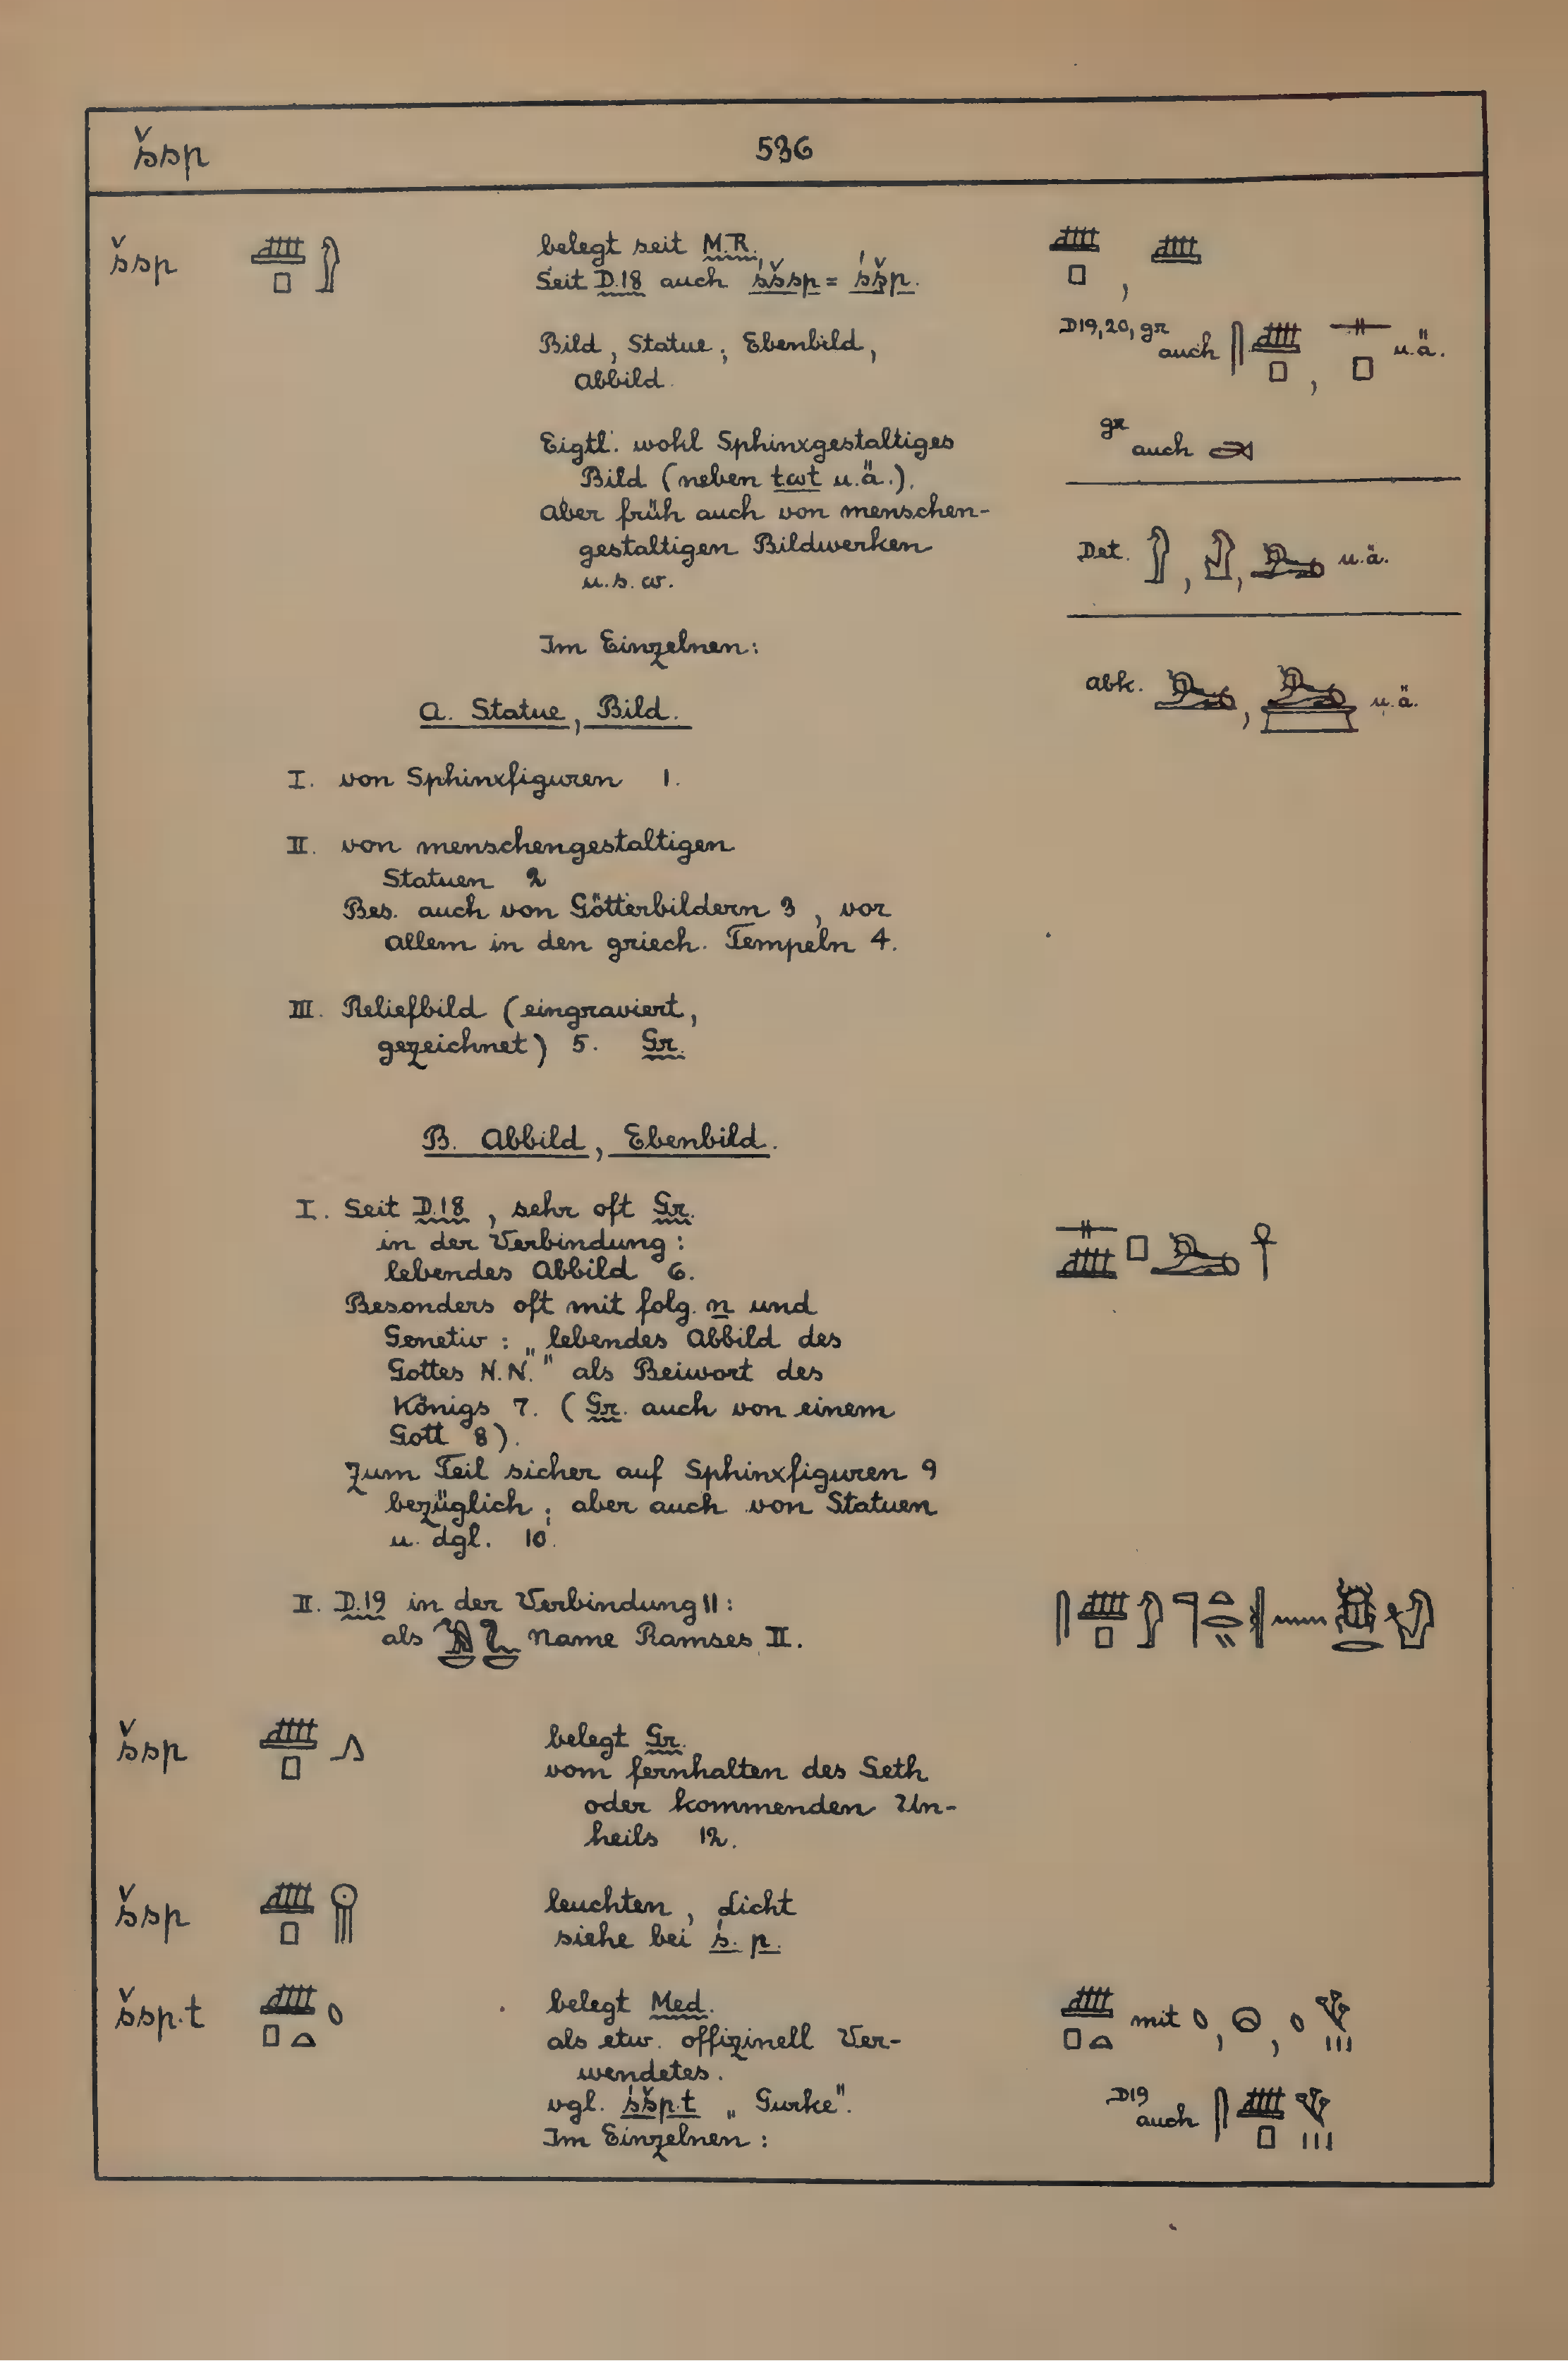 šsp 536
šsp 𓊏𓊪𓀾
belegt seit M.R.
Seit D.18 auch śšsp = śšp.
Bild, Statue; Ebenbild,
Abbild.
Eigtl. wohl Sphinxgestaltiges
Bild (neben twt u.ä.).
Aber früh auch von menschen-
gestaltigen Bildwerken
u.s.w.
Im Einzelnen:
D19,20,gr
auch u.ä.
gr
auch
Det. u.ä.
abk. u.ä.
A. Statue, Bild.
I. von Sphinxfiguren 1.
II. von menschengestaltigen
Statuen 2
Bes. auch von Götterbildern 3, vor
allem in den griech. Tempeln 4.
III. Reliefbild (eingraviert,
gezeichnet) 5. Gr.
B. Abbild, Ebenbild.
I. Seit D.18, sehr oft Gr.
in der Verbindung:
lebendes Abbild 6.
Besonders oft mit folg. n und
Genetiv: „lebendes Abbild des
Gottes N.N." als Beiwort des
Königs 7. (Gr. auch von einem
Gott 8).
Zum Teil sicher auf Sphinxfiguren 9
bezüglich; aber auch von Statuen
u. dgl. 10.
II. D.19 in der Verbindung 11:
als 𓅒 Name Ramses II.
šsp
belegt Gr.
vom Fernhalten des Seth
oder kommenden Un-
heils 12.
šsp
leuchten, Licht
siehe bei ś. p.
šsp.t
belegt Med.
als etw. offizinell Ver-
wendetes.
vgl. śšp.t „Gurke".
Im Einzelnen:
mit
D19
auch